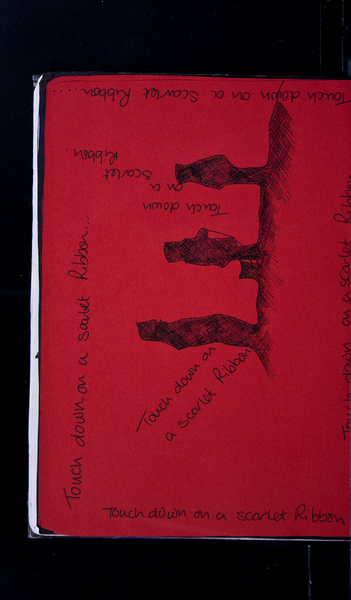 Touch down on a Scarlet Ribbon....
Touch down
on a
Scarlet
Ribbon.
Touch down on a Scarlet Ribbon...
Touch down on
a scarlet Ribbon
Touch down on a scarlet Ribbon
Touch down on a scarlet Ribbon